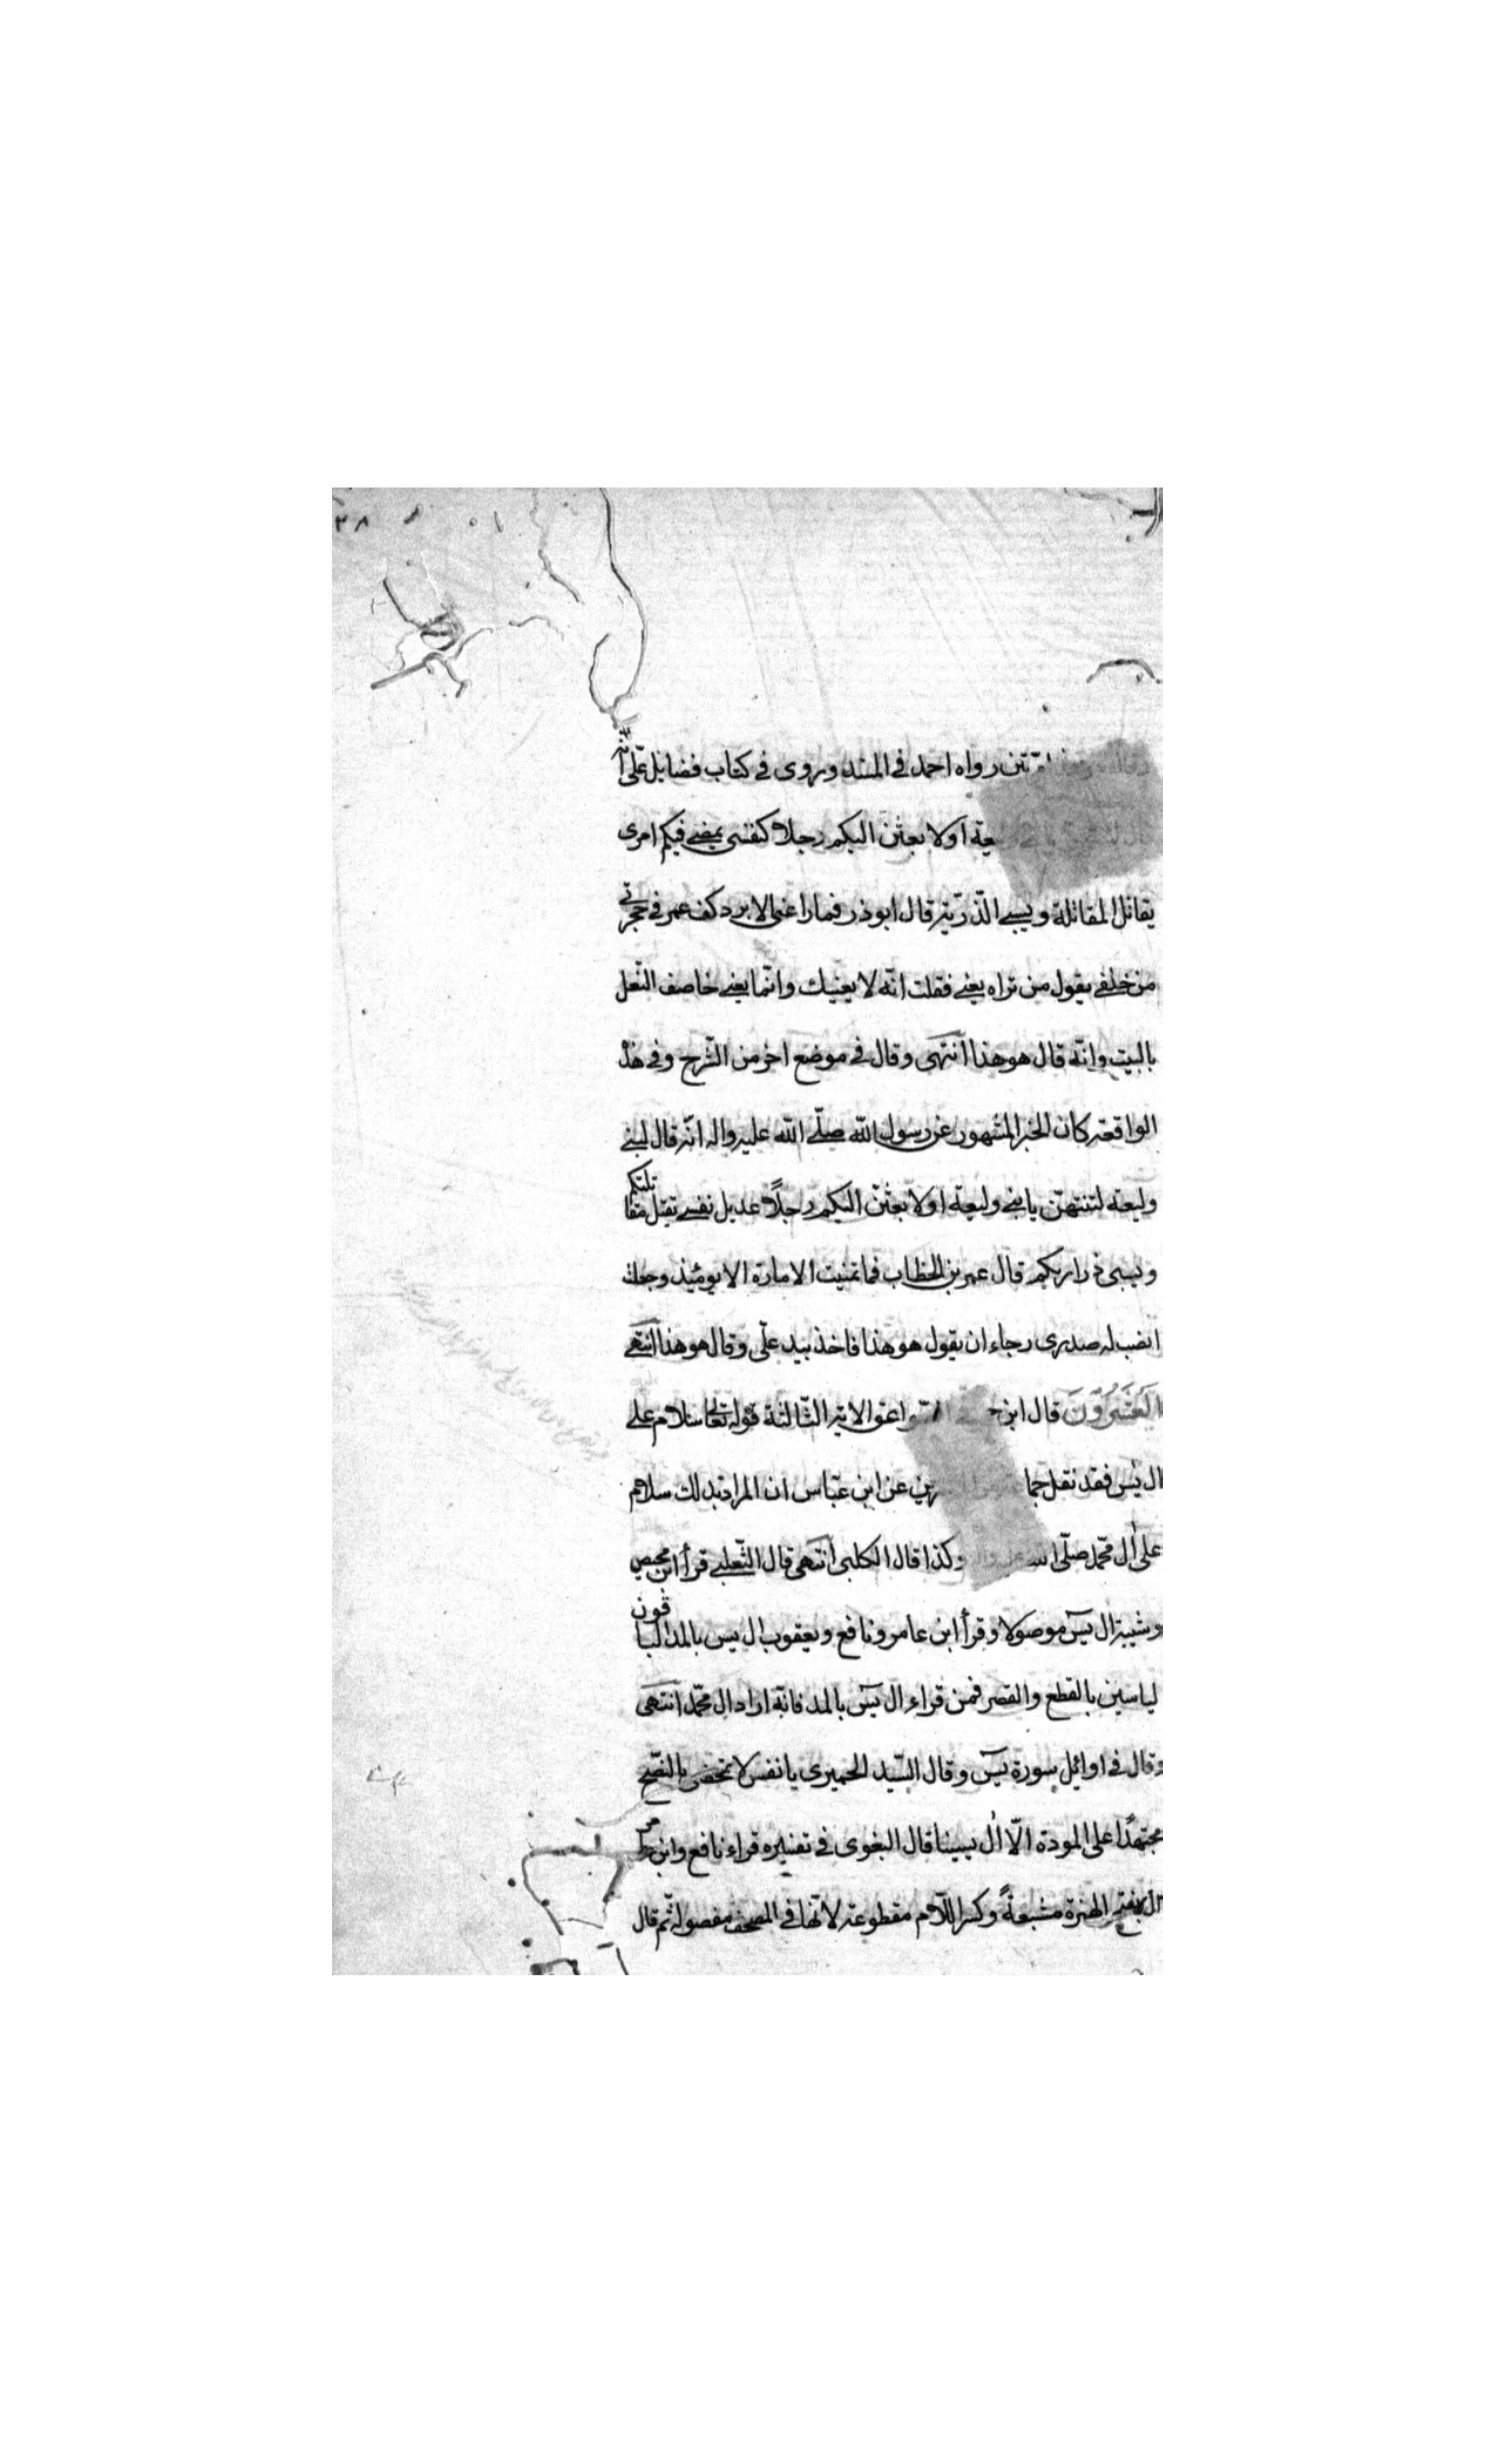 ٣٨
مرتين رواه احمد في المسند وروى في كتاب فضايل علي انه
قال وليعة او لابعثن اليكم رجلا كنفسي يمضي فيكم امري
يقاتل المقاتلة ويسبي الذرية قال ابوذر فما راعني الا برد كف عمر في حجزتي
من خلفي يقول من تراه يعني فقلت انه لا يعنيك وانما يعني خاصف النعل
بالبيت وانه قال هو هذا انتهى وقال في موضع اخر من الشرح وفي هذه
الواقعة كان الخبر المشهور عن رسول الله صلى الله عليه واله انه قال لبني
وليعة لتنتهن يا بني وليعة او لابعثن اليكم رجلاً عديل نفسي تقتل مقاتلتكم
ويسبى ذراريكم قال عمر بن الخطاب فما تمنيت الامارة الا يومئذ وجعلت
انصب له صدري رجاء ان يقول هو هذا فاخذ بيد علي وقال هو هذا انتهى
العشرون قال ابن في الصواعق الاية الثالثة قوله تعالى سلام على
ال يس فقد نقل جماعة من المفسرين عن ابن عباس ان المراد بذلك سلام
على ال محمد صلى الله عليه واله وكذا قال الكلبي انتهى قال الثعلبي قرأ ابن محيص
وشيبة ال يس موصولا وقرأ ابن عامر ونافع ويعقوب ال يس بالمد الباقون
لياسين بالقطع والقصر فمن قراء ال يس بالمد فانه اراد ال محمد انتهى
وقال في اوائل سورة يس وقال السيد الحميري يا نفس لا تمحضي بالنصح
مجتهدا على المودة الا ال يسينا قال البغوي في تفسيره قراء نافع وابن عامر
ال بفتح الهمزة مشبعةً وكسر اللام مقطوعة لانها في المصحف مفصولة ثم قال